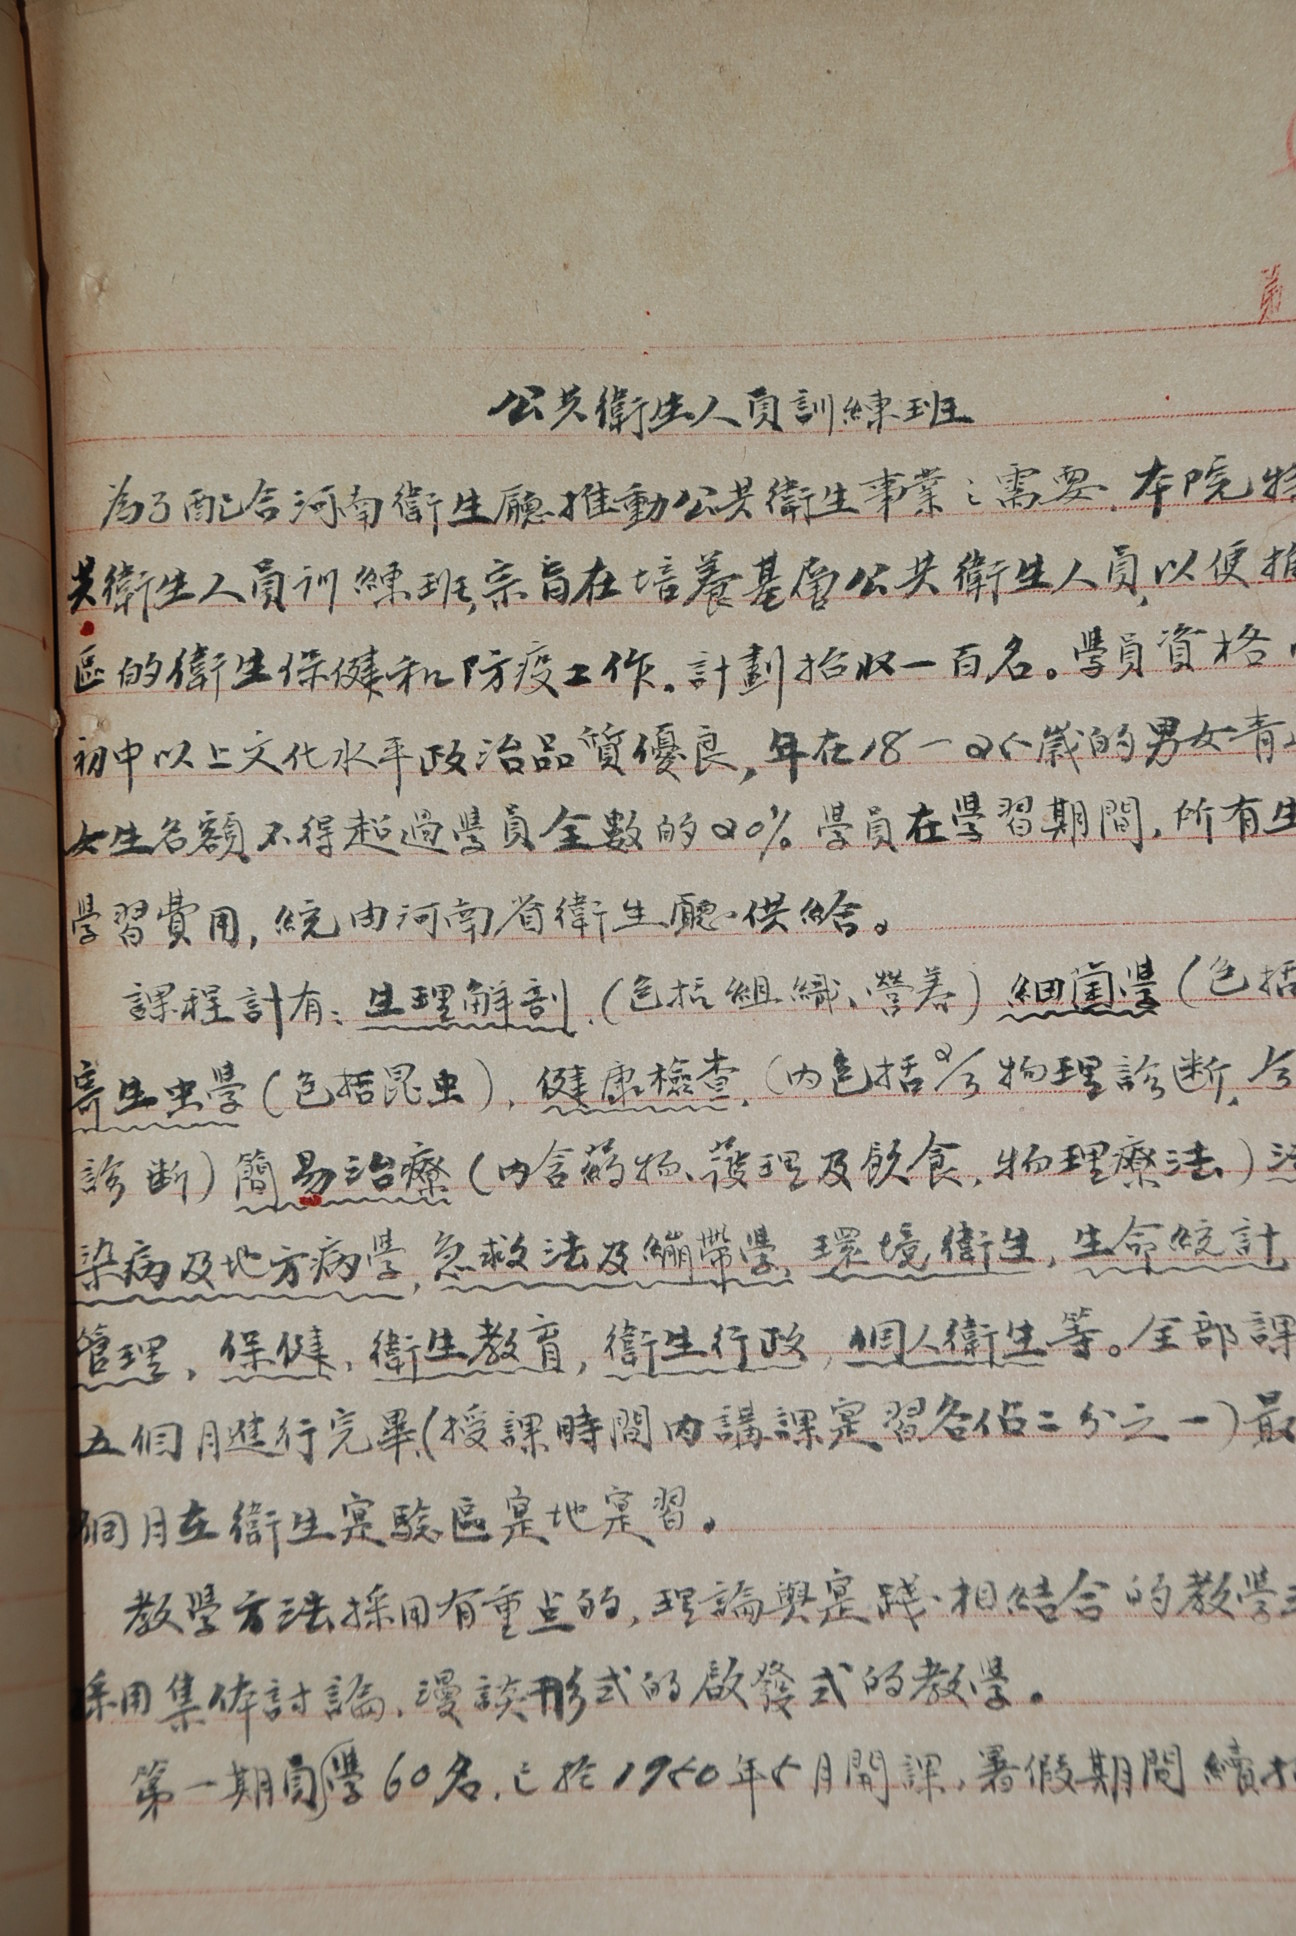 第
公共衛生人員訓練班
為了配合河南衛生廳推動公共衛生事業之需要．本院特
共衛生人員訓練班，宗旨在培養基層公共衛生人員，以便推
區的衛生保健和防疫工作。計劃招收一百名。學員資格
初中以上文化水平政治品質優良，年在18－25歲的男女青
女生名額不得超過學員全數的20%。學員在學習期間，所有生
學習費用，統由河南省衛生廳供給。
課程計有：生理解剖．（包括組織、營養）細菌學（包括
寄生虫學（包括昆虫），健康檢查，（內包括物理診断，
診断）簡易治療（內含藥物、護理及飲食，物理療法）
染病及地方病學，急救法及繃帶學，環境衛生，生命統計，
管理，保健，衛生教育，衛生行政，個人衛生等。全部課
五個月進行完畢，（授課時間內講課寔習各佔二分之一）最
個月在衛生寔驗區寔地寔習。
教學方法採用有重点的，理論與寔踐相結合的教學
採用集体討論，漫談形式的啟發式的教學。
第一期員學60名，已於1950年5月開課，暑假期間續招